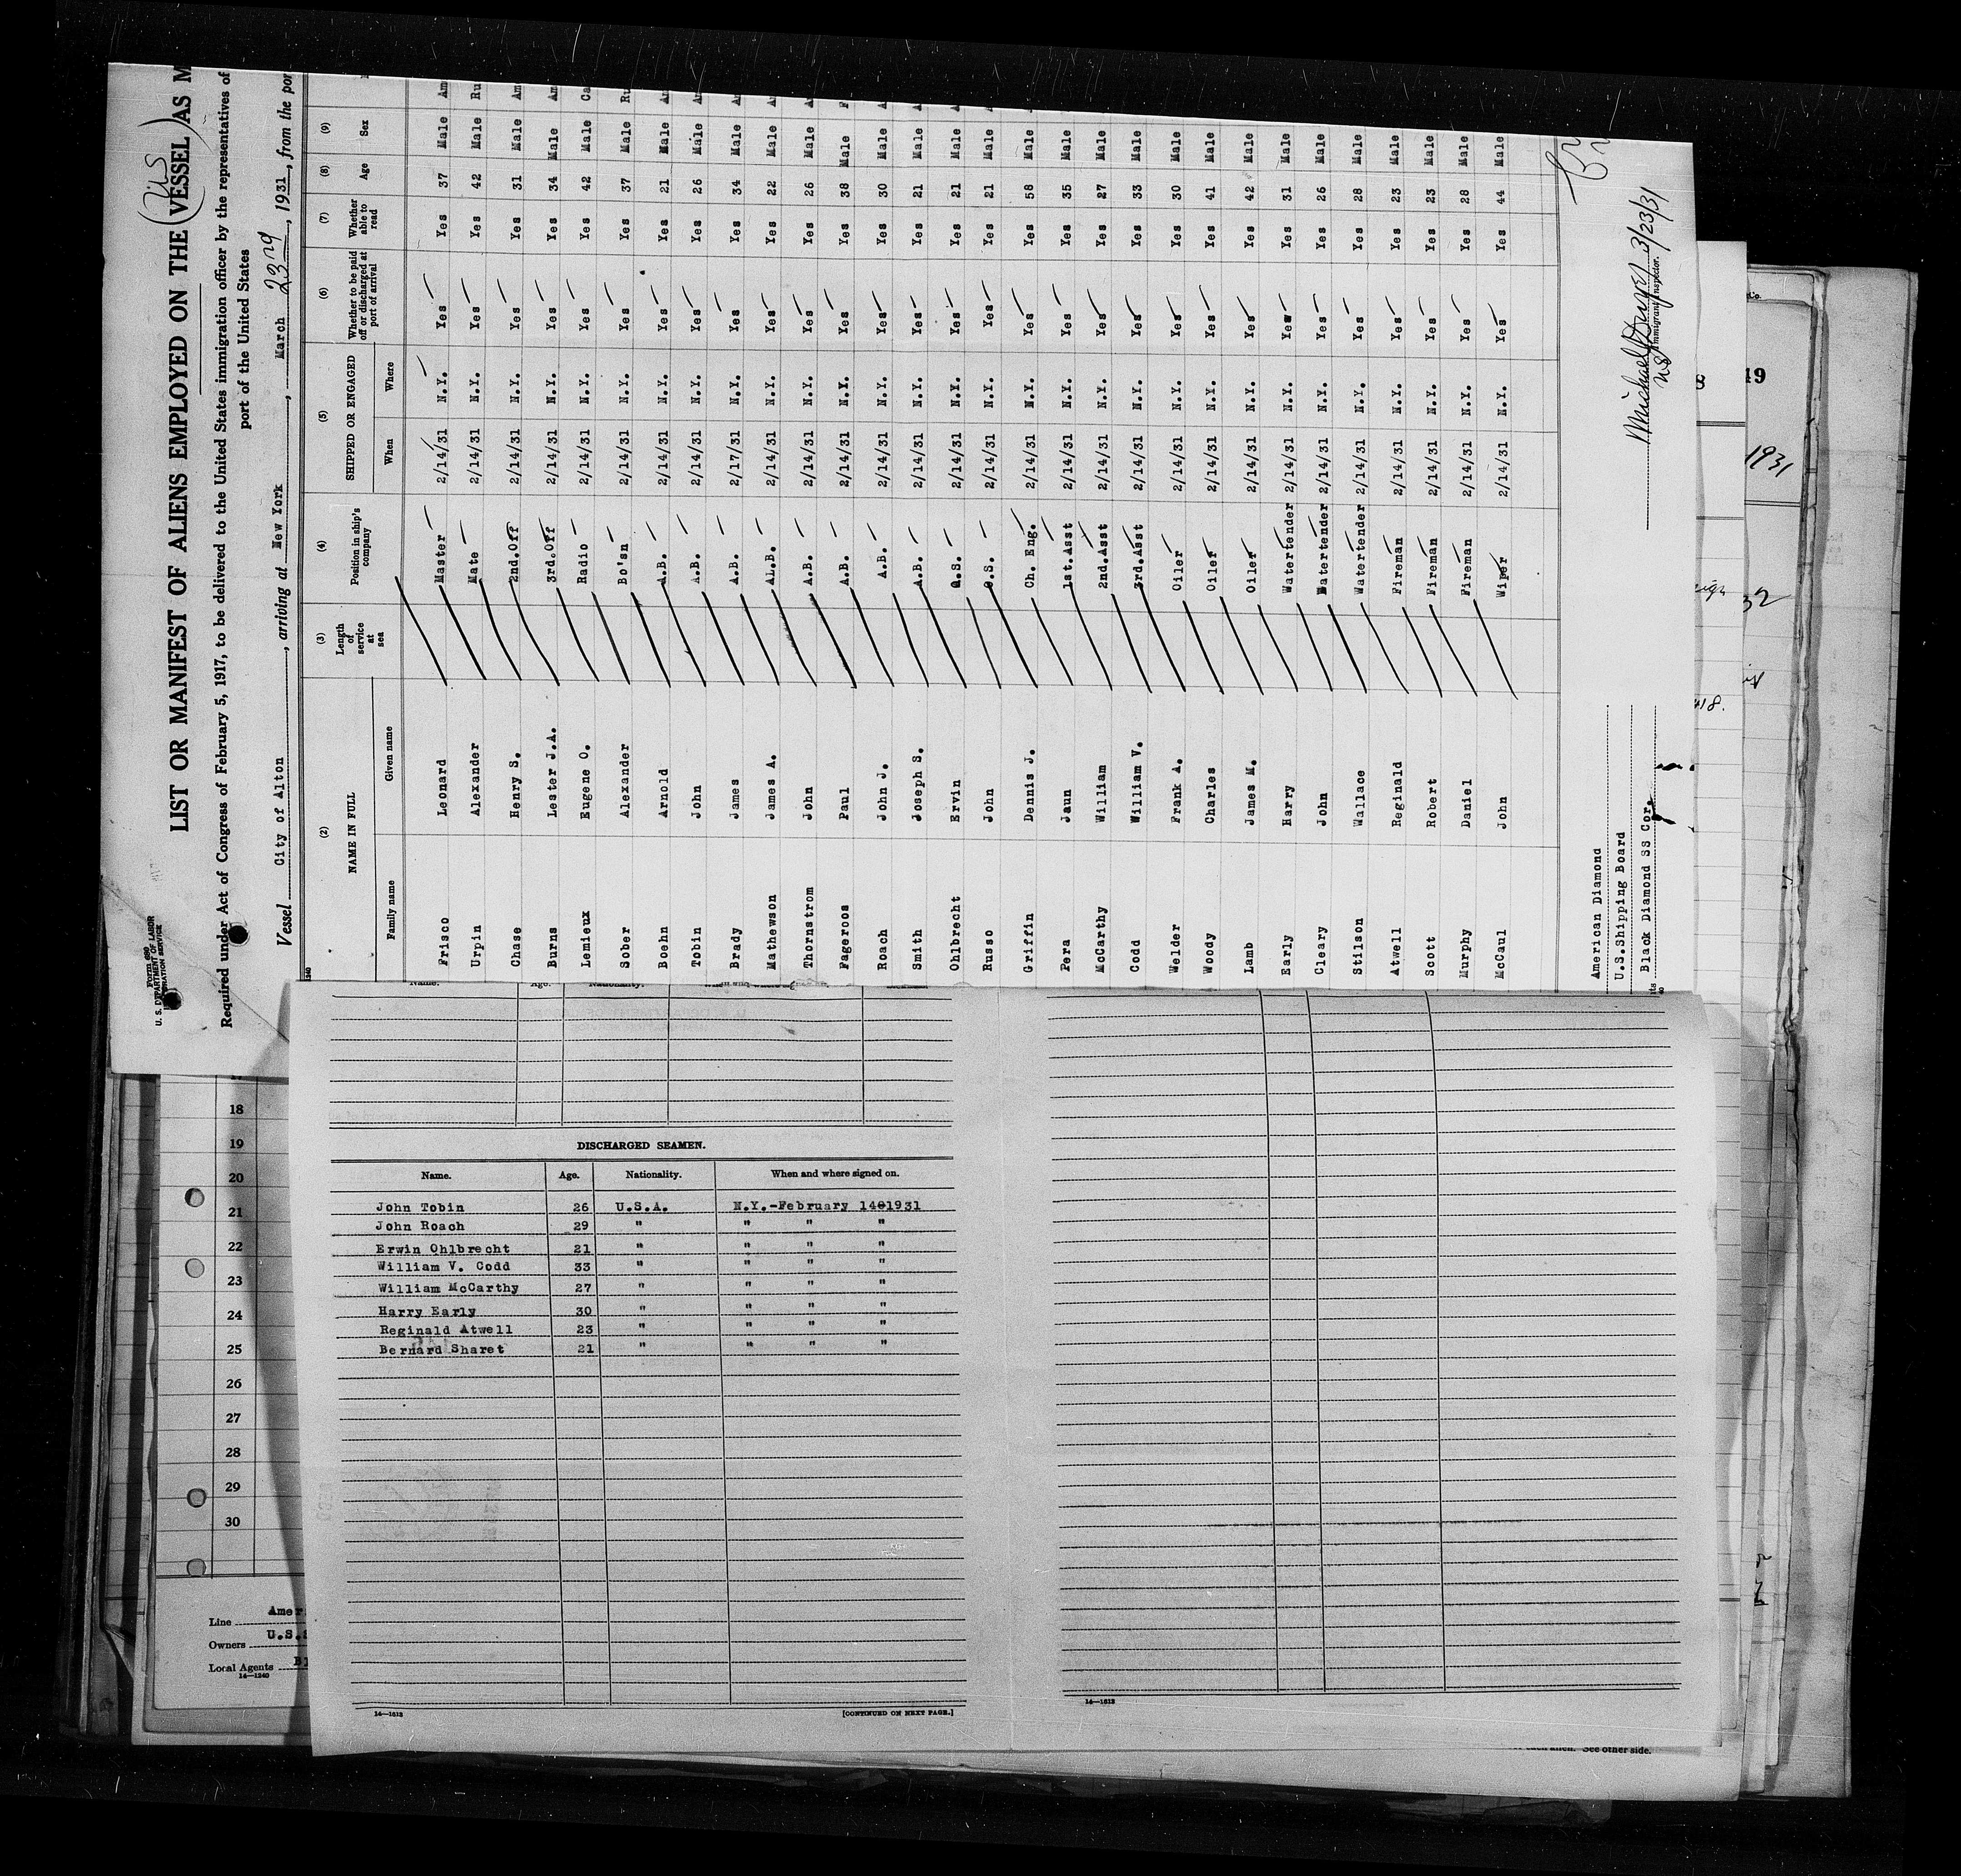 Form 680
U. S. DEPARTMENT OF LABOR
IMMIGRATION SERVICE
LIST OR MANIFEST OF ALIENS EMPLOYED ON THE VESSEL AS M
Required under Act of Congress of February 5, 1917, to be delivered to the United States immigration officer by the representatives of
port of the United States
Vessel City of Alton, arriving at New York, March 23rd, 1931, from the por
(2) (3) (4) (5) (6) (7) (8) (9)
NAME IN FULL Length of service at sea Position in ship's company SHIPPED OR ENGAGED Whether to be paid off or discharged at port of arrival Whether able to read Age Sex
Family name Given name When Where
Frisco Leonard Master 2/14/31 N.Y. Yes Yes 37 Male Am
Urpin Alexander Mate 2/14/31 N.Y. Yes Yes 42 Male Ru
Chase Henry S. 2nd.Off 2/14/31 N.Y. Yes Yes 31 Male Am
Burns Lester J.A. 3rd.Off 2/14/31 N.Y. Yes Yes 34 Male Am
Lemieux Eugene O. Radio 2/14/31 N.Y. Yes Yes 42 Male Ca
Sober Alexander Bo'sn 2/14/31 N.Y. Yes Yes 37 Male Ru
Boehn Arnold A.B. 2/14/31 N.Y. Yes Yes 21 Male
Tobin John A.B. 2/14/31 N.Y. Yes Yes 26 Male
Brady James A.B. 2/17/31 N.Y. Yes Yes 34 Male
Mathewson James A. AL.B. 2/14/31 N.Y. Yes Yes 22 Male
Thornstrom John A.B. 2/14/31 N.Y. Yes Yes 26 Male
Fageroos Paul A.B. 2/14/31 N.Y. Yes Yes 38 Male
Roach John J. A.B. 2/14/31 N.Y. Yes Yes 30 Male
Smith Joseph S. A.B. 2/14/31 N.Y. Yes Yes 21 Male
Ohlbrecht Ervin O.S. 2/14/31 N.Y. Yes Yes 21 Male
Russo John O.S. 2/14/31 N.Y. Yes Yes 21 Male
Griffin Dennis J. Ch. Eng. 2/14/31 N.Y. Yes Yes 58 Male
Pera Jaun 1st.Asst 2/14/31 N.Y. Yes Yes 35 Male
McCarthy William 2nd.Asst 2/14/31 N.Y. Yes Yes 27 Male
Codd William V. 3rd.Asst 2/14/31 N.Y. Yes Yes 33 Male
Welder Frank A. Oiler 2/14/31 N.Y. Yes Yes 30 Male
Woody Charles Oiler 2/14/31 N.Y. Yes Yes 41 Male
Lamb James M. Oiler 2/14/31 N.Y. Yes Yes 42 Male
Early Harry Watertender 2/14/31 N.Y. Yes Yes 31 Male
Cleary John Watertender 2/14/31 N.Y. Yes Yes 26 Male
Stilson Wallace Watertender 2/14/31 N.Y. Yes Yes 28 Male
Atwell Reginald Fireman 2/14/31 N.Y. Yes Yes 23 Male
Scott Robert Fireman 2/14/31 N.Y. Yes Yes 23 Male
Murphy Daniel Fireman 2/14/31 N.Y. Yes Yes 28 Male
McCaul John Wiper 2/14/31 N.Y. Yes Yes 44 Male
American Diamond
U.S.Shipping Board
Black Diamond SS Cor.
Michael 3/23/31
Immigrant Inspector.
Name. Age. Nationality.
DISCHARGED SEAMEN.
Name. Age. Nationality. When and where signed on.
John Tobin 26 U.S.A. N.Y.-February 1401931
John Roach 29 " " " "
Erwin Ohlbrecht 21 " " " "
William V. Codd 33 " " " "
William McCarthy 27 " " " "
Harry Early 30 " " " "
Reginald Atwell 23 " " " "
Bernard Sharet 21 " " " "
14—1613
[CONTINUED ON NEXT PAGE.]
14—1613
18
19
20
21
22
23
24
25
26
27
28
29
30
Line Amer
Owners U.S.S
Local Agents Bl
14—1240
See other side.
19
1931
32